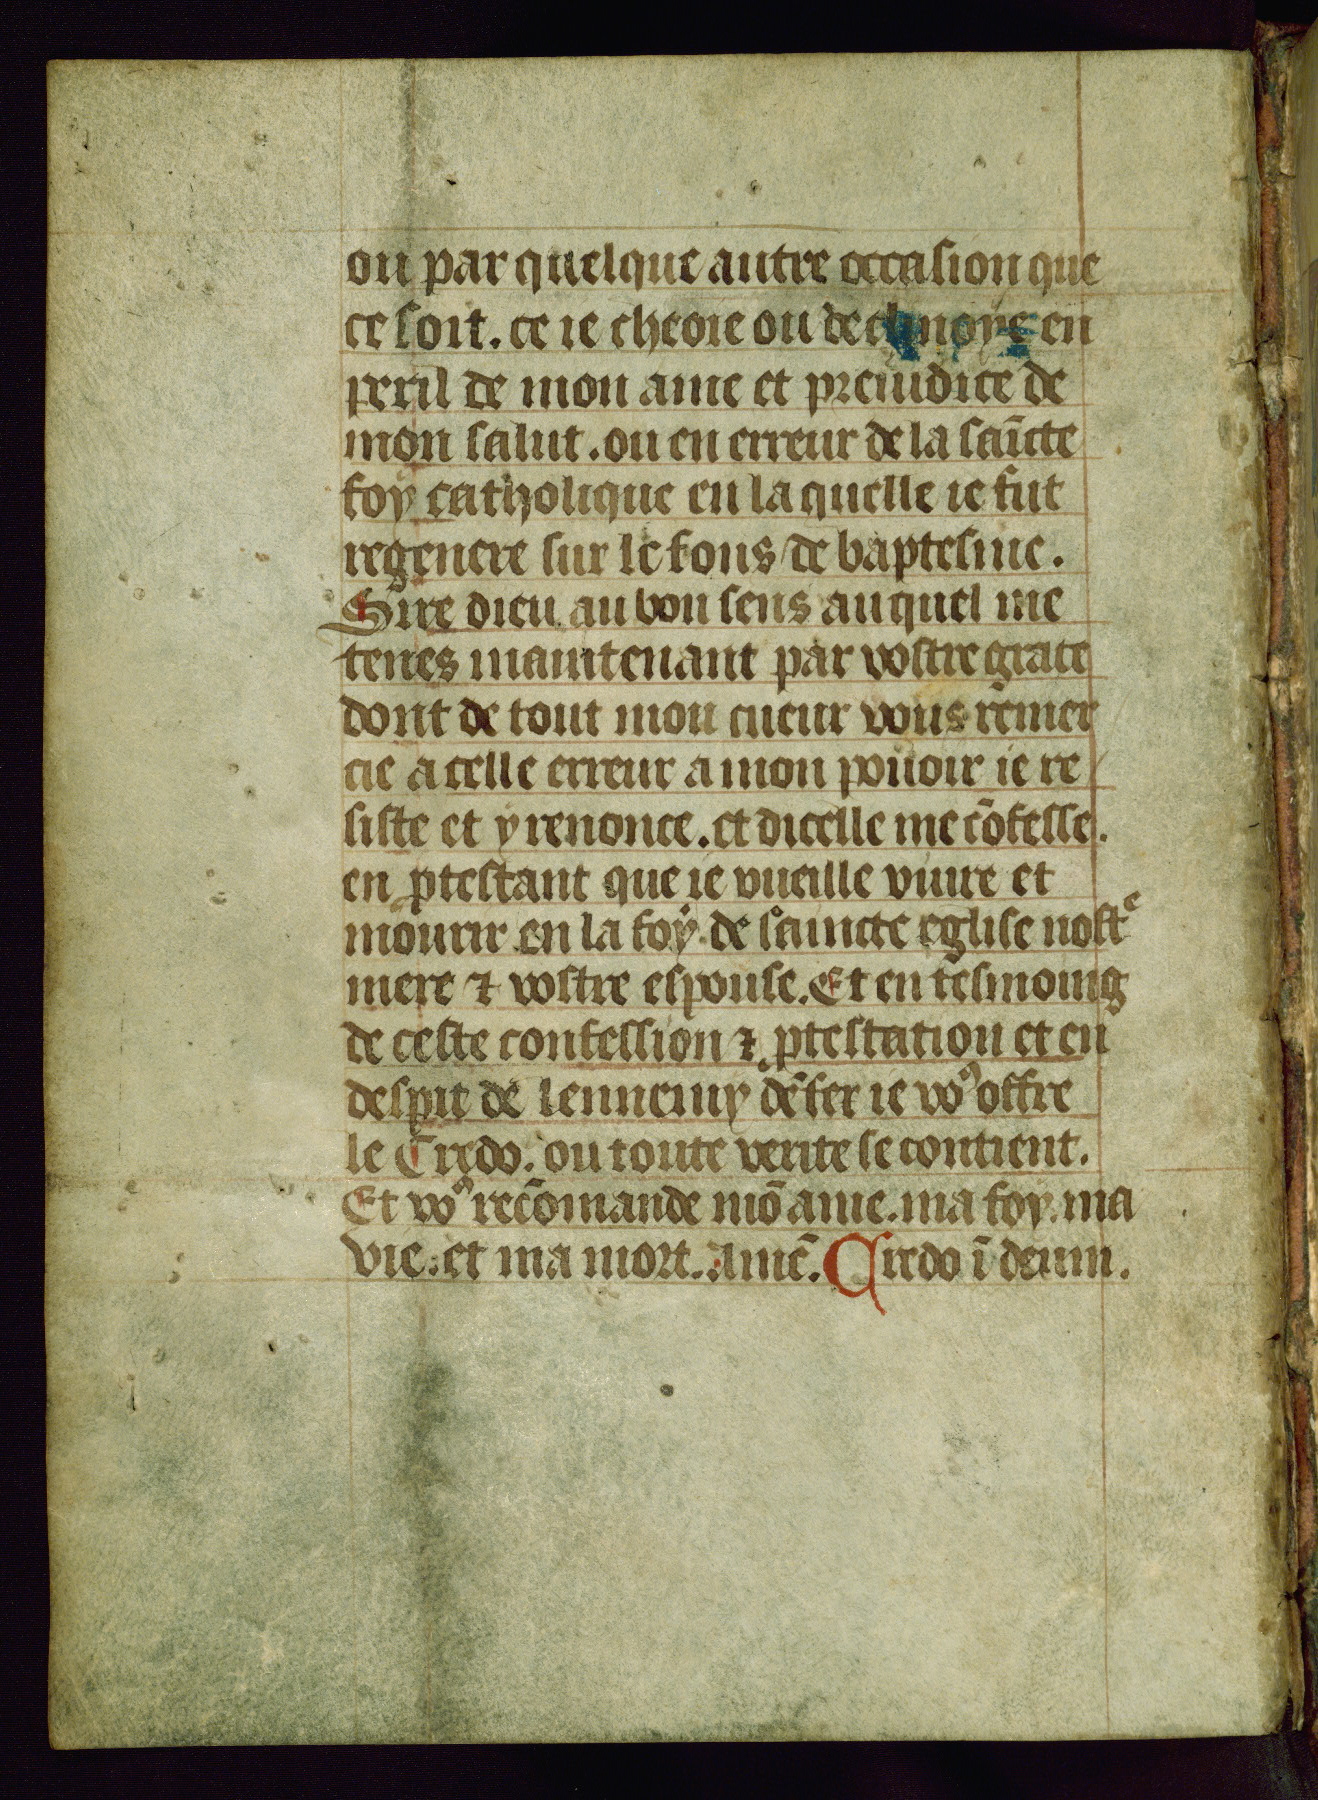 ou par quelque autre occasion que
ce soit. ce ie cheoie ou declinoye en
peril de mon ame et preiudice de
mon salut. ou en erreur de la saīcte
foy catholique en la quelle ie fut
regenere sur le fons de baptesme.
Sire dieu au bon sens auquel me
tenes maintenant par vostre grace
dont de tout mon cueur vous remer
cie a celle erreur a mon pouoir ie re
siste et y renonce. et dicelle me cōfesse.
en ꝓtestant que ie vueille viure et
mourir en la foy de saincte eglise nostᵉ
mere ⁊ vostre espouse. Et en tesmoing
de ceste confession ⁊ ꝓtestation et en
despit de lennemy dēfer ie voꝰ offre
le Credo. ou toute verite se contient.
Et voꝰ recōmande mō ame. ma foy. ma
vie. et ma mort. Amē. Credo ī deum.